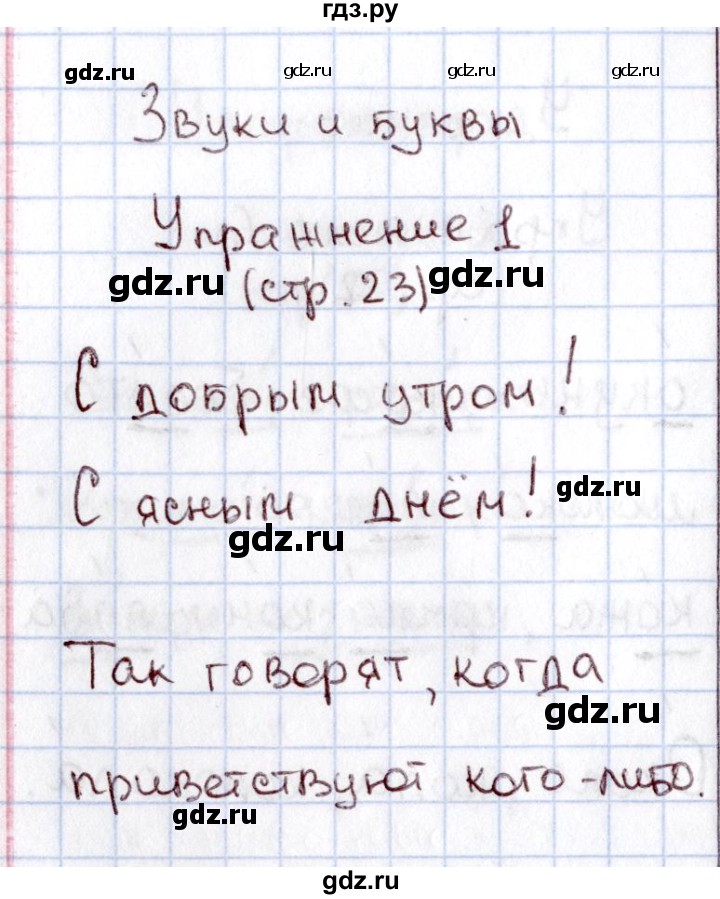 гдз.ру
gdz.ru gdz.ru gdz.ru
Звуки и буквы
Упражнение 1
gdz.ru (стр. 23) gdz.ru
С добрым утром!
С ясным днём! gdz.ru
gdz.ru
Так говорят, когда
gdz.ru
приветствуют кого-либо.
gdz.ru
gdz.ru